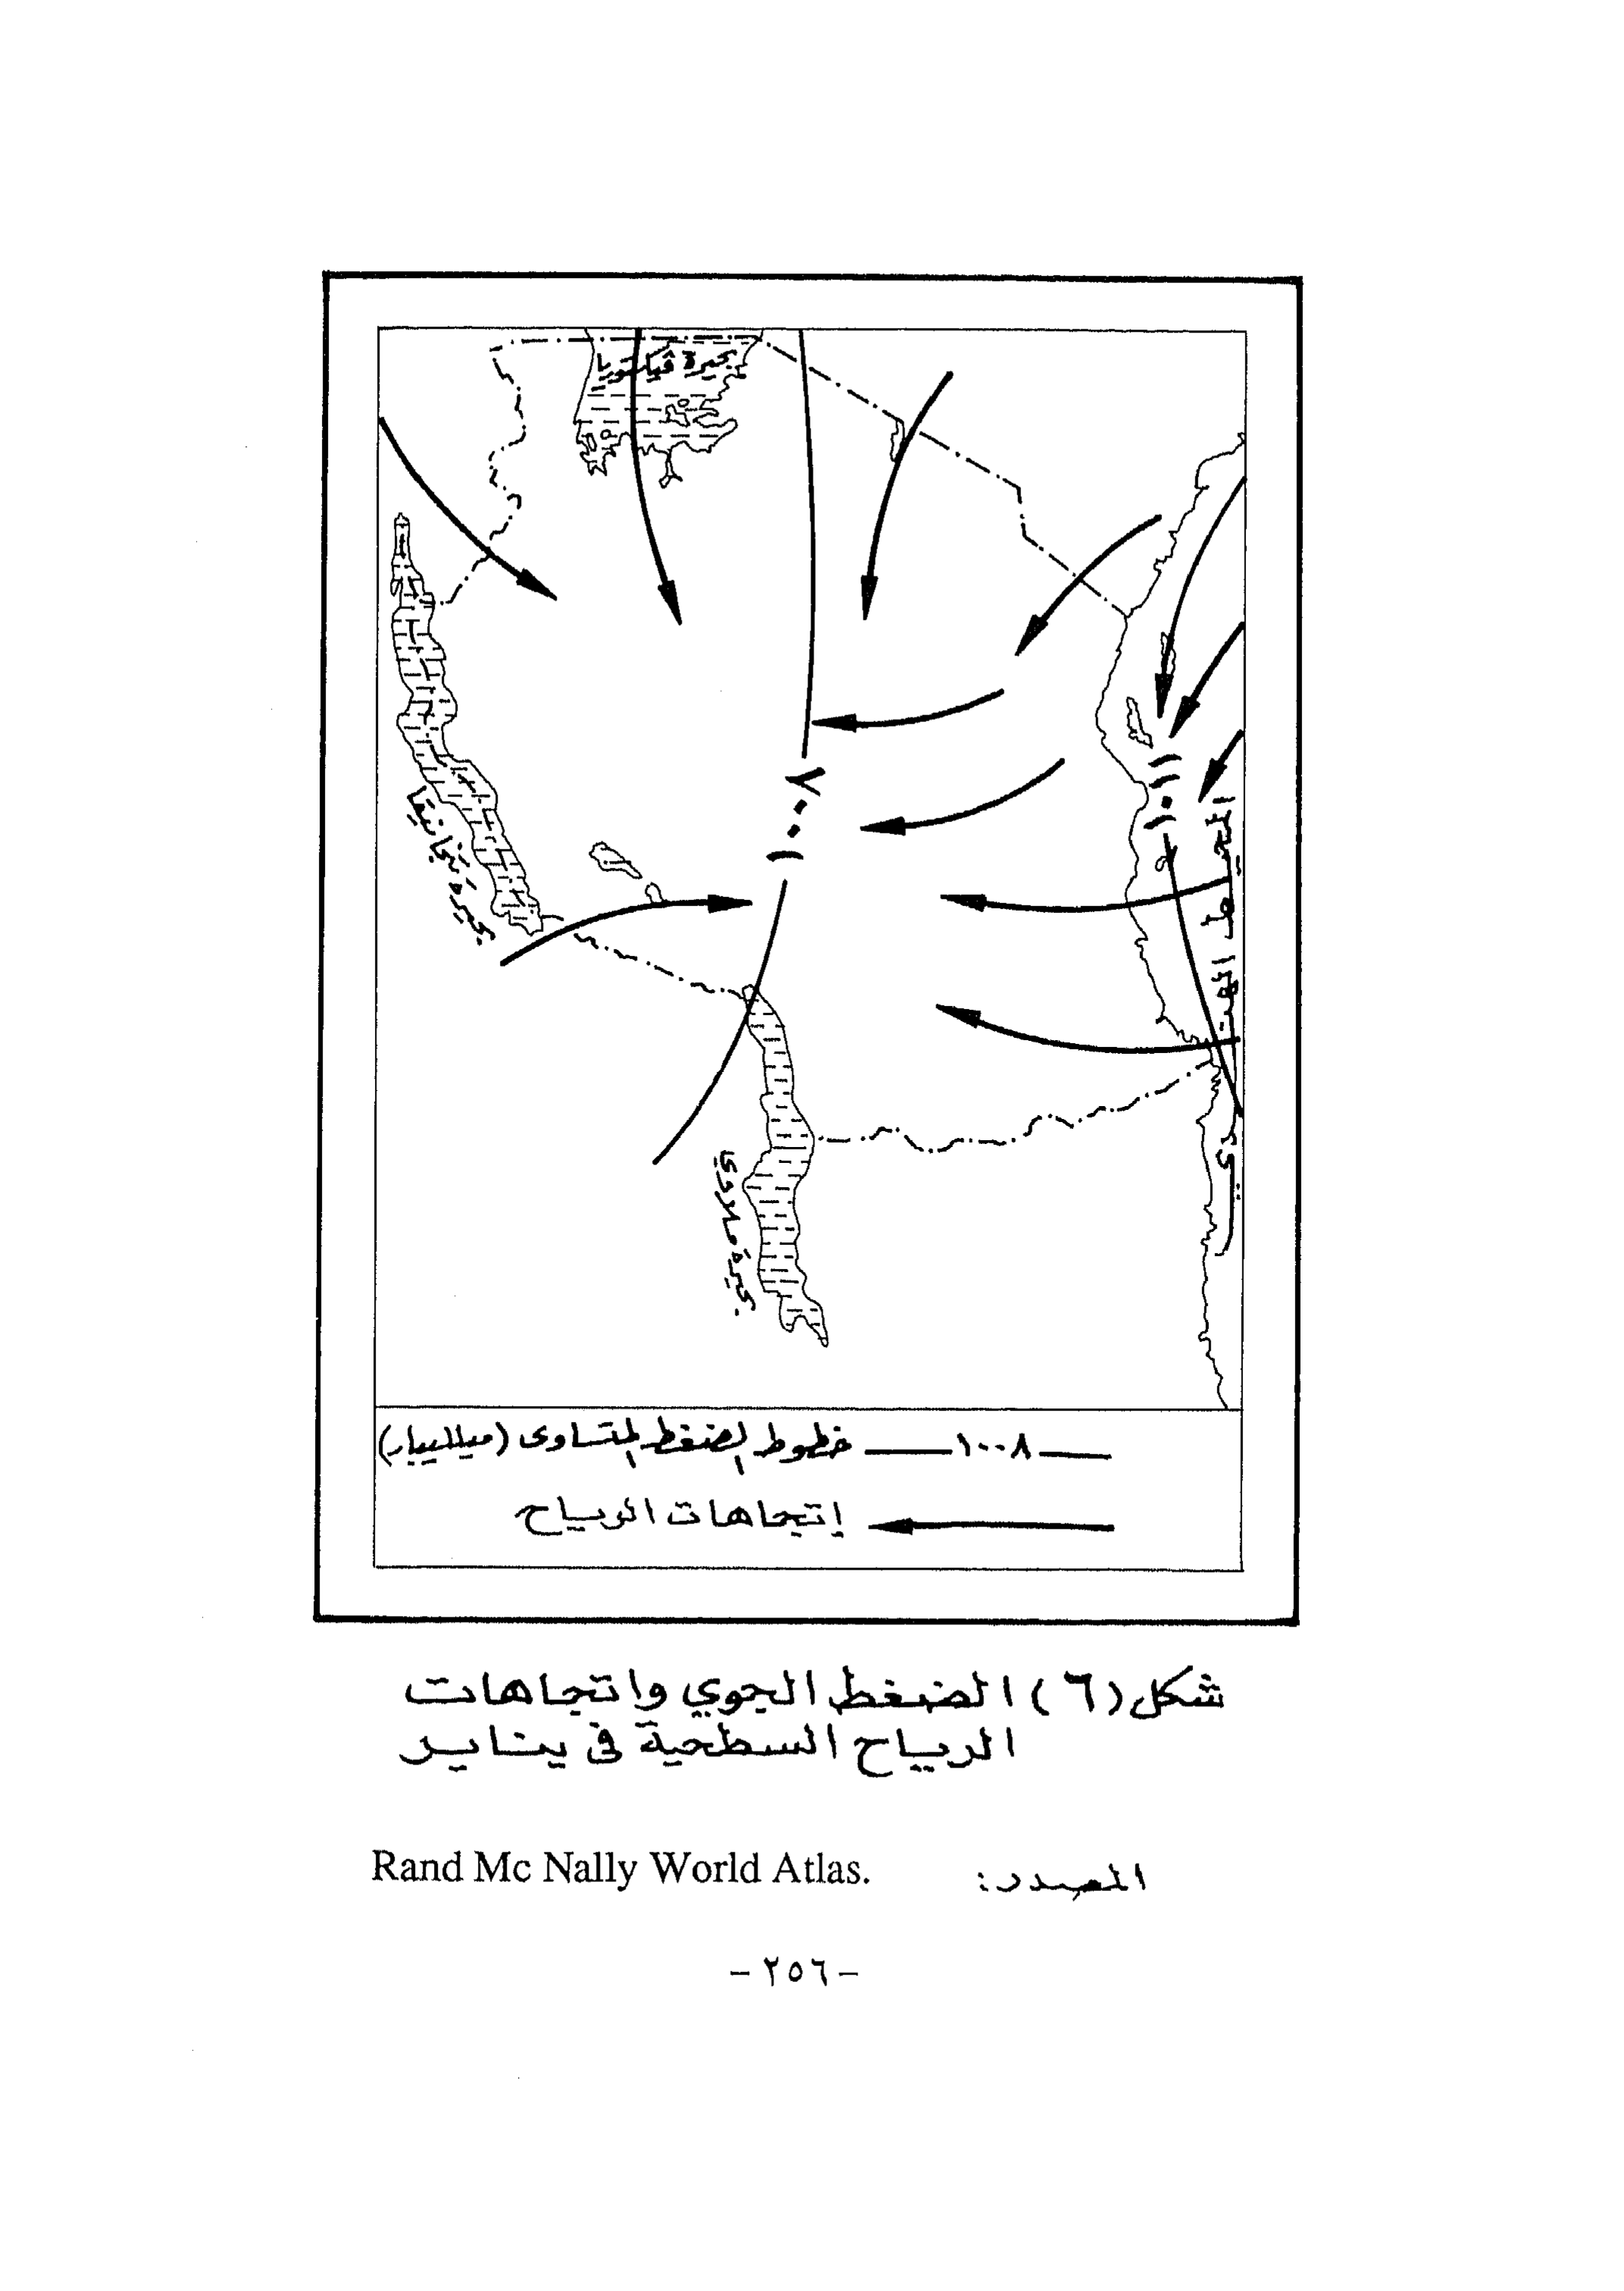 بحيرة ڤيكتوريا
بحيرة تنجانيقا
١٠٠٧
١٠١١
المحيط الهندي
بحيرة ملاوي
١٠٠٨ خطوط الضغط المتساوى (ميلليبار)
إتجاهات الرياح
شكل (٦) الضغط الجوي واتجاهات
الرياح السطحية في يناير
المصدر: Rand Mc Nally World Atlas.
- ٢٥٦ -